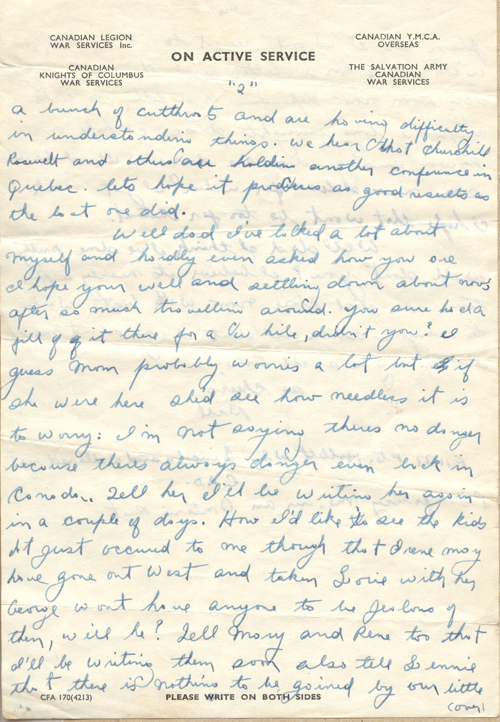 CANADIAN LEGION
WAR SERVICES Inc.
CANADIAN
KNIGHTS OF COLUMBUS
WAR SERVICES
ON ACTIVE SERVICE
CANADIAN Y.M.C.A.
OVERSEAS
THE SALVATION ARMY
CANADIAN
WAR SERVICES
"2"
a bunch of cutthroats and are having difficulty
in understanding things. We hear that Churchill
Rosevelt and others are holding another conference in
Quebec. lets hope it produces as good results as
the last one did.
Well dad I've talked a lot about
myself and hardly even asked how you are
I hope your well and settling down about now
after so much travelling around. you sure had a
fill of it there for a while, didn't you? I
guess Mom probably worries a lot but if
she were here she'd see how needless it is
to worry: I'm not saying theres no danger
because theres always danger even back in
Canada.. Tell her I'll be writing her again
in a couple of days. How I'd like to see the kids
It just occured to me though that Irene may
have gone out West and taken with her
George wont have anyone to be Jealous of
then, will he? Tell Mary and Rene too that
I'll be writing them soon also tell
that there is nothing to be gained by our little
(over)
CFA 170(4213)
PLEASE WRITE ON BOTH SIDES